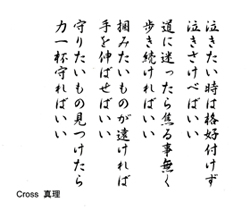 泣きたい時は格好付けず
泣きさけべばいい
道に迷ったら焦る事無く
歩き続ければいい
掴みたいものが遠ければ
手を伸ばせばいい
守りたいもの見つけたら
力一杯守ればいい
Cross 真理